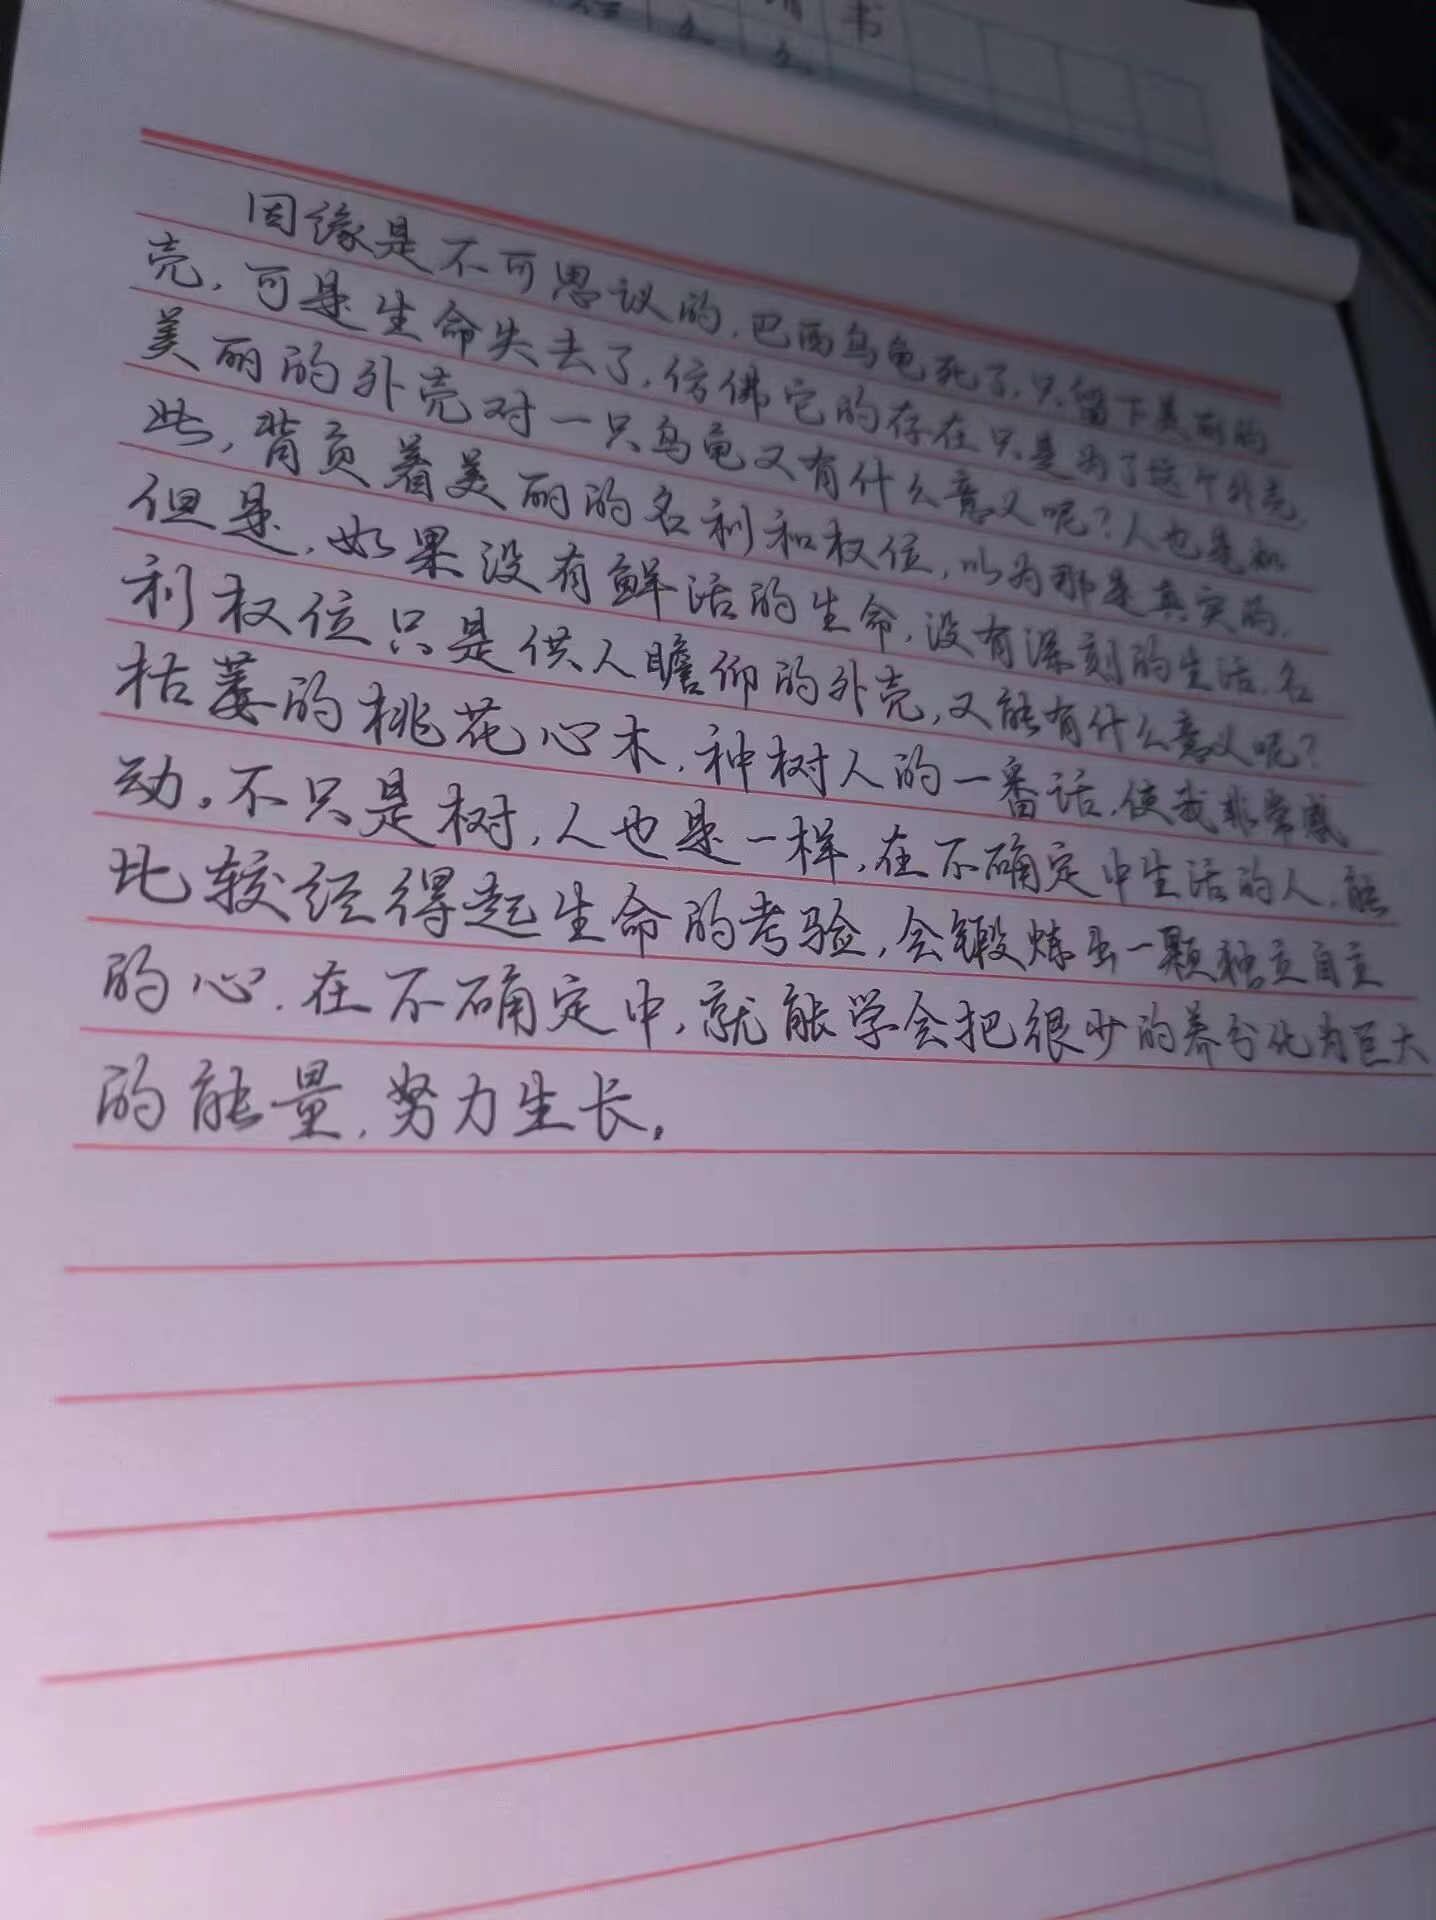 书
因缘是不可思议的,巴西乌龟死了,只留下美丽的
壳,可是生命失去了,仿佛它的存在只是为了这个外壳,
美丽的外壳对一只乌龟又有什么意义呢?人也是如
此,背负着美丽的名利和权位,以为那是真实的,
但是,如果没有鲜活的生命,没有深刻的生活,名
利权位只是供人瞻仰的外壳,又能有什么意义呢?
枯萎的桃花心木,种树人的一番话,使我非常感
动。不只是树,人也是一样,在不确定中生活的人,能
比较经得起生命的考验,会锻炼出一颗独立自主
的心.在不确定中,就能学会把很少的养分化为巨大
的能量,努力生长。